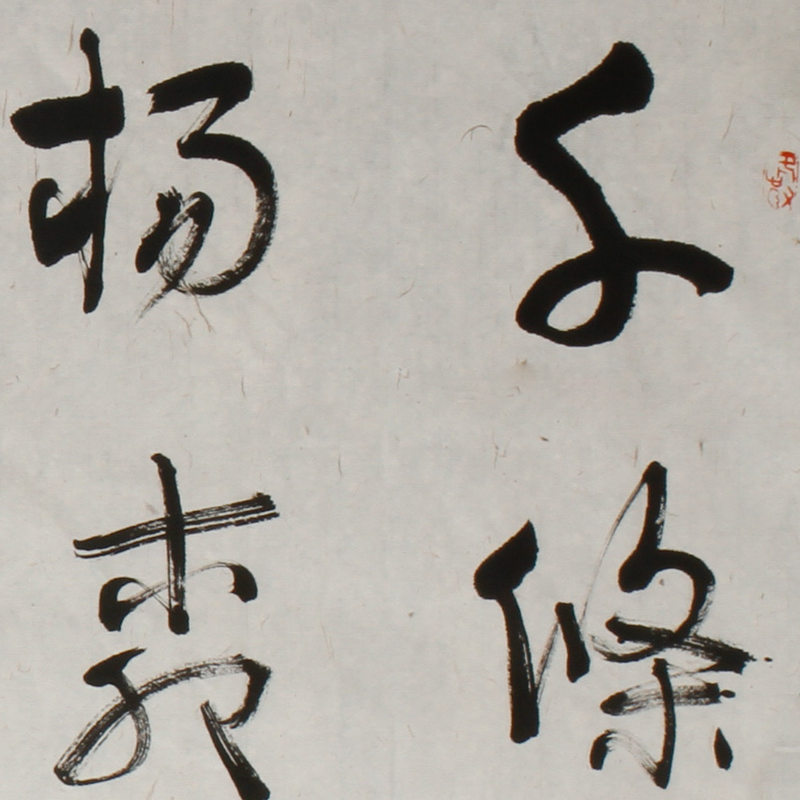 千條
楊柳